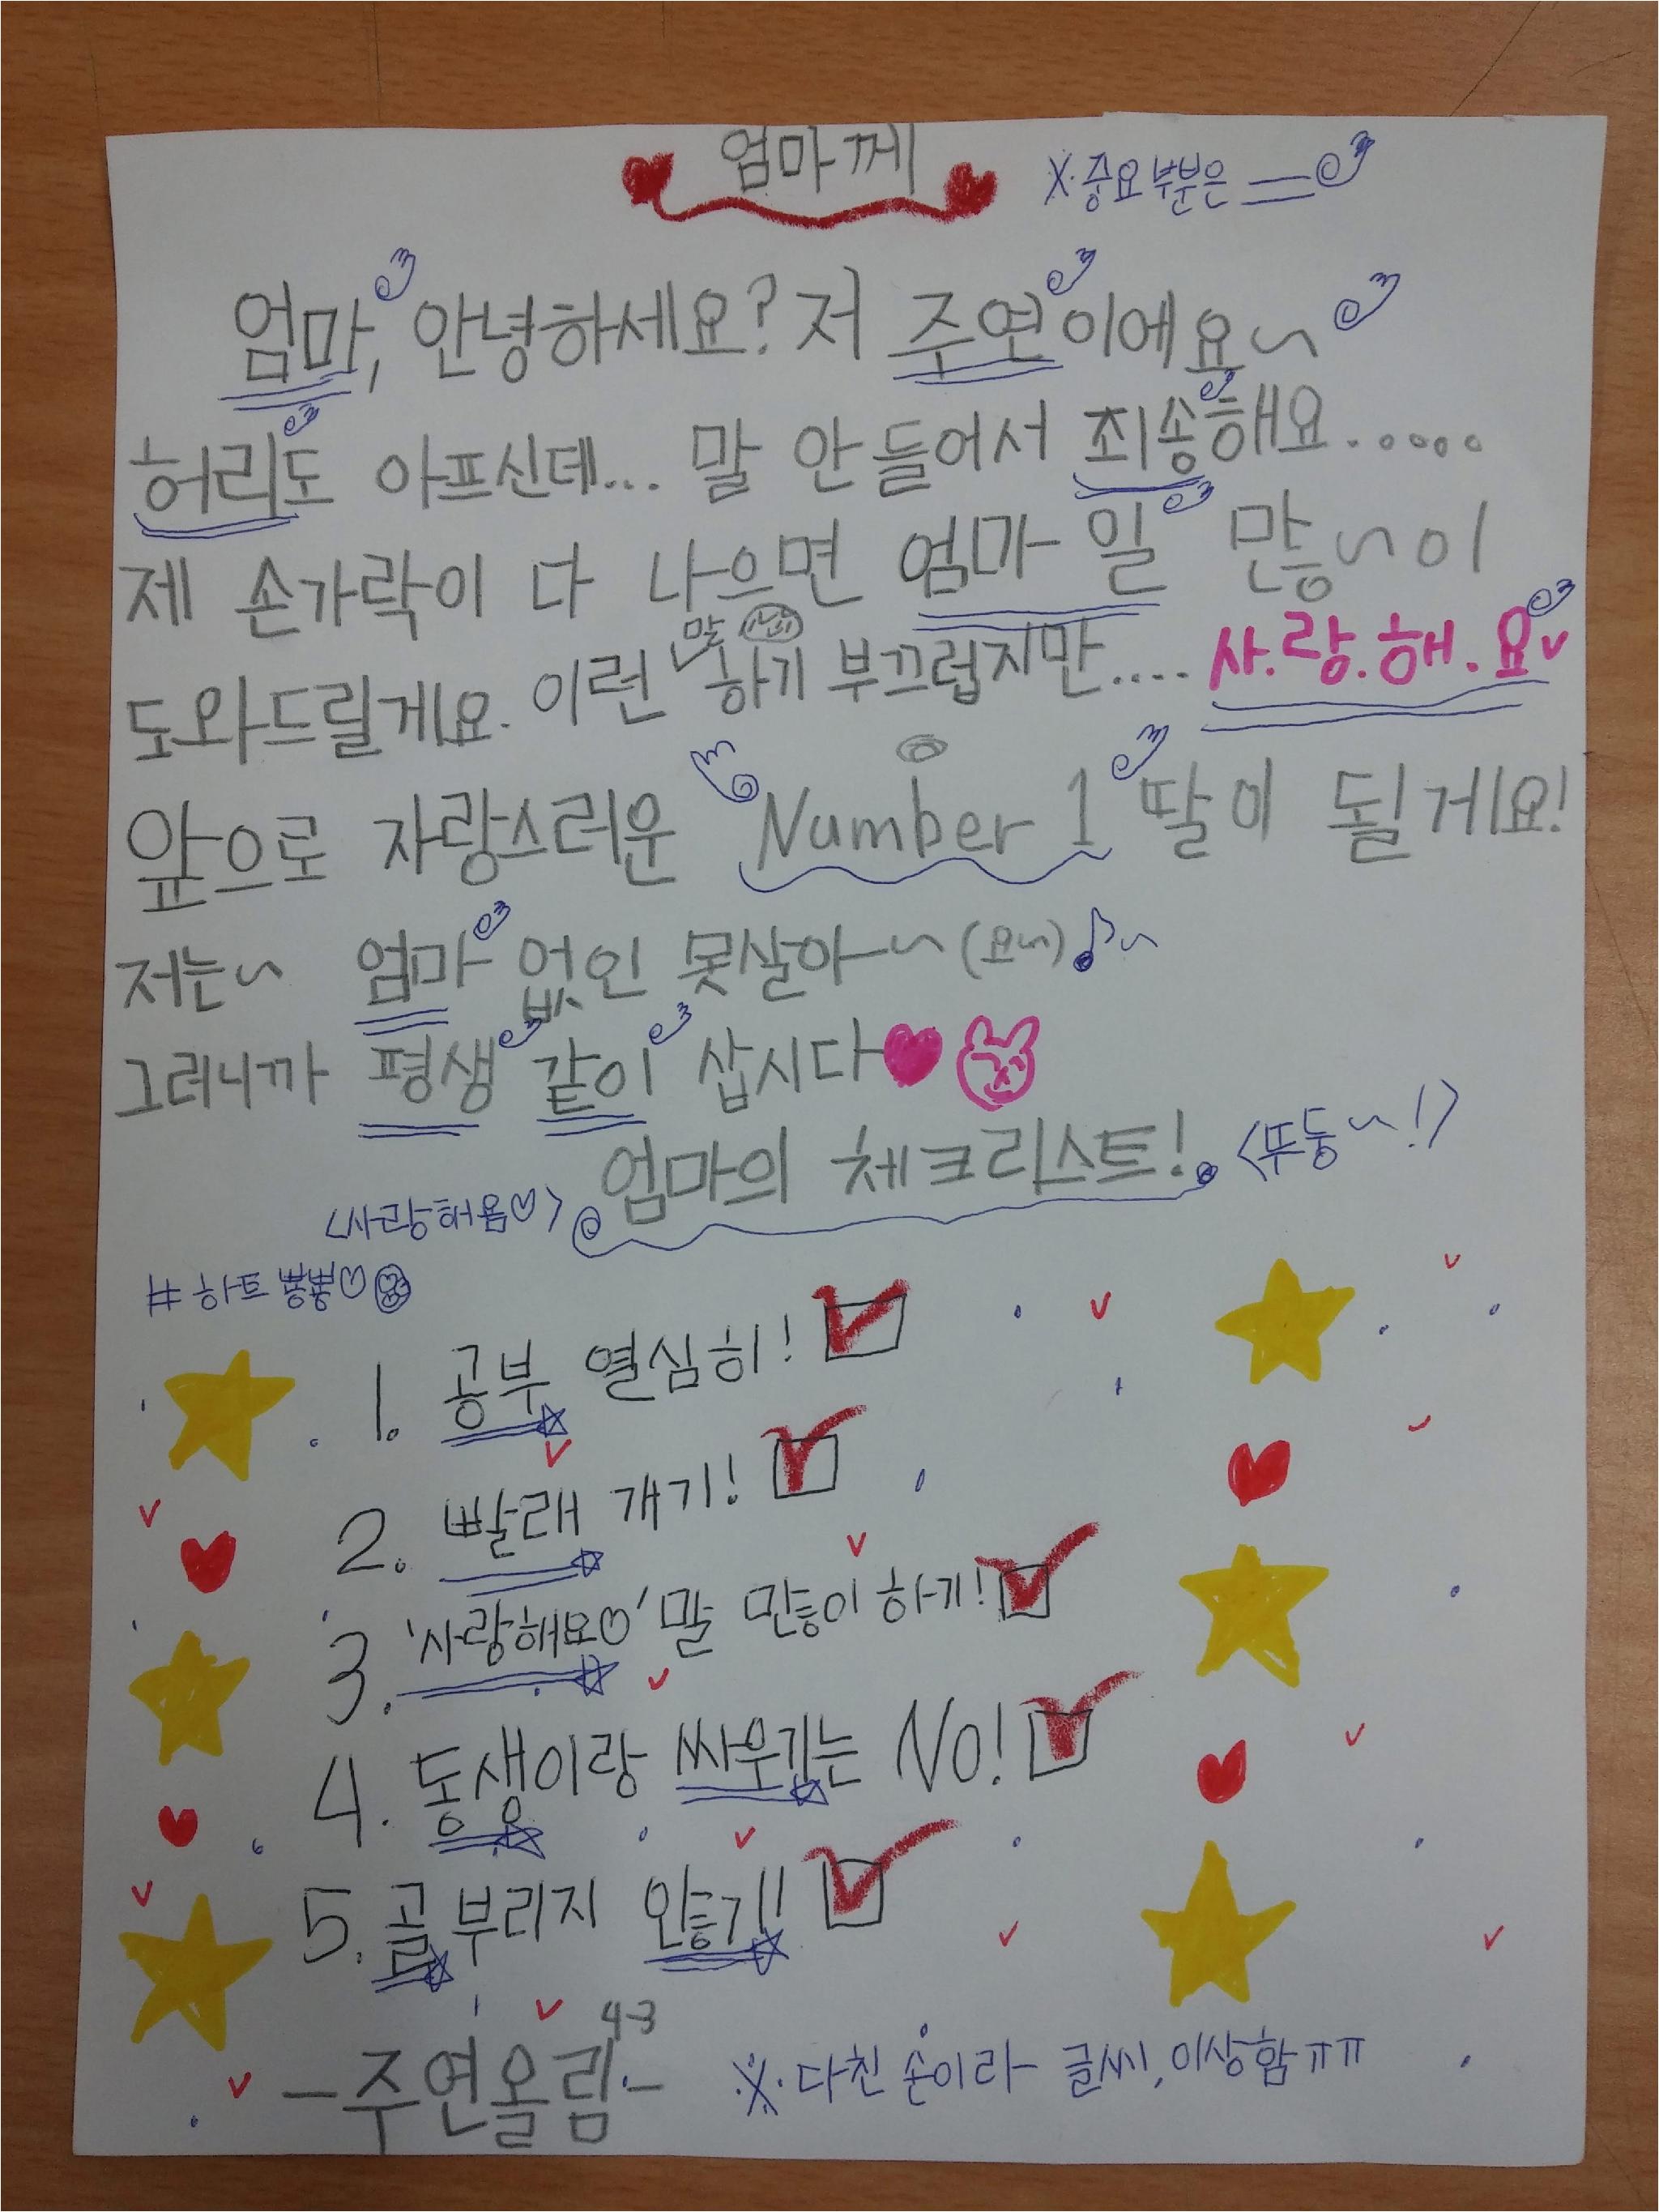 엄마께
※.중요부분은
엄마, 안녕하세요? 저 주연이에요~
허리도 아프신데... 말 안 들어서 죄송해요......
제 손가락이 다 나으면 엄마 일 많~이
도와드릴게요. 이런 말 하기 부끄럽지만.... 사.랑.해.요
앞으로 자랑스러운 Number 1 딸이 될게요!
저는~ 엄마 없인 못살아~ (요~)♪~
그러니까 평생 같이 삽시다♥
엄마의 체크리스트! <뚜둥~!>
<사랑해욤♡>
#하트뿅뿅♡
1. 공부 열심히!
2. 빨래 개기!
3. '사랑해요♡' 말 많이 하기!
4. 동생이랑 싸우기는 No!
5. 골 부리지 않기!
4-3
-주연올림-
※.다친 손이라 글씨, 이상함ㅠㅠ